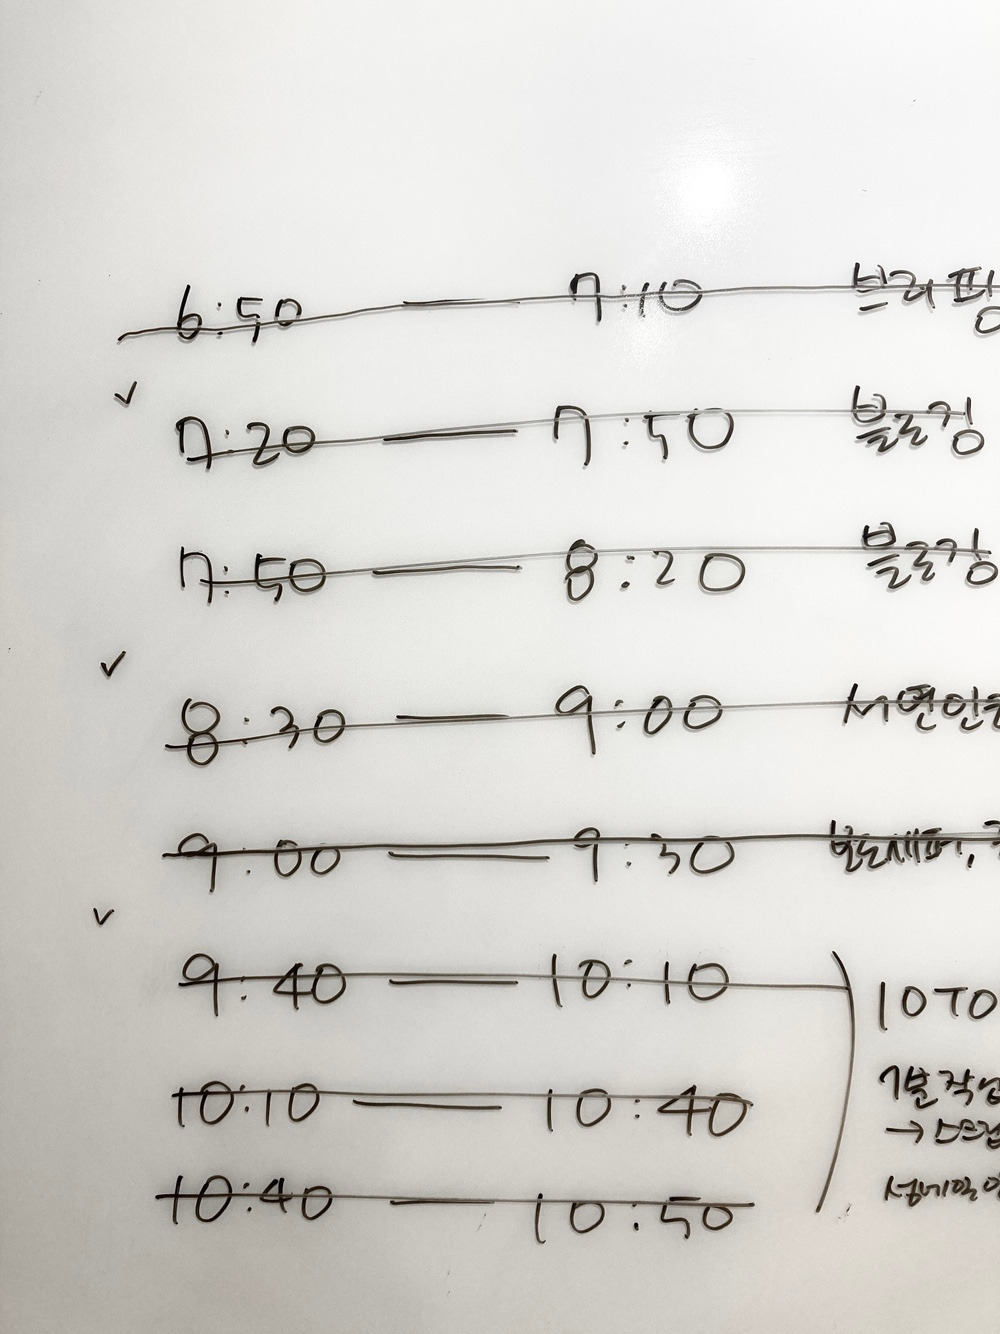 6:50 — 7:10 브리핑
7:20 — 7:50 블로깅
7:50 — 8:20 블로깅
8:30 — 9:00
9:00 — 9:30
9:40 — 10:10
10 TO
10:10 — 10:40
10:40 — 10:50